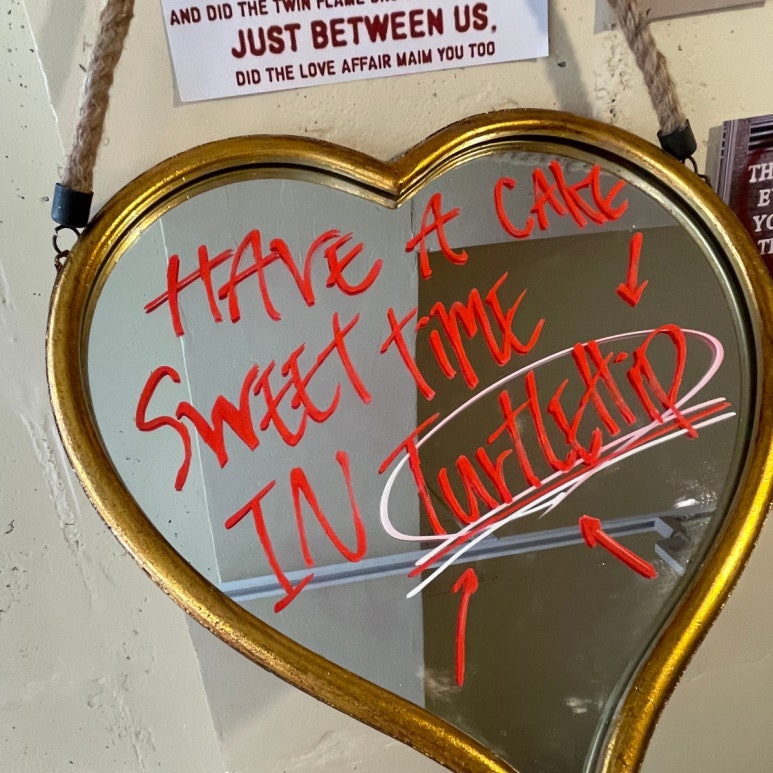 AND DID THE TWIN FLAME
JUST BETWEEN US,
DID THE LOVE AFFAIR MAIM YOU TOO
HAVE A CAKE
SWEET TIME
IN